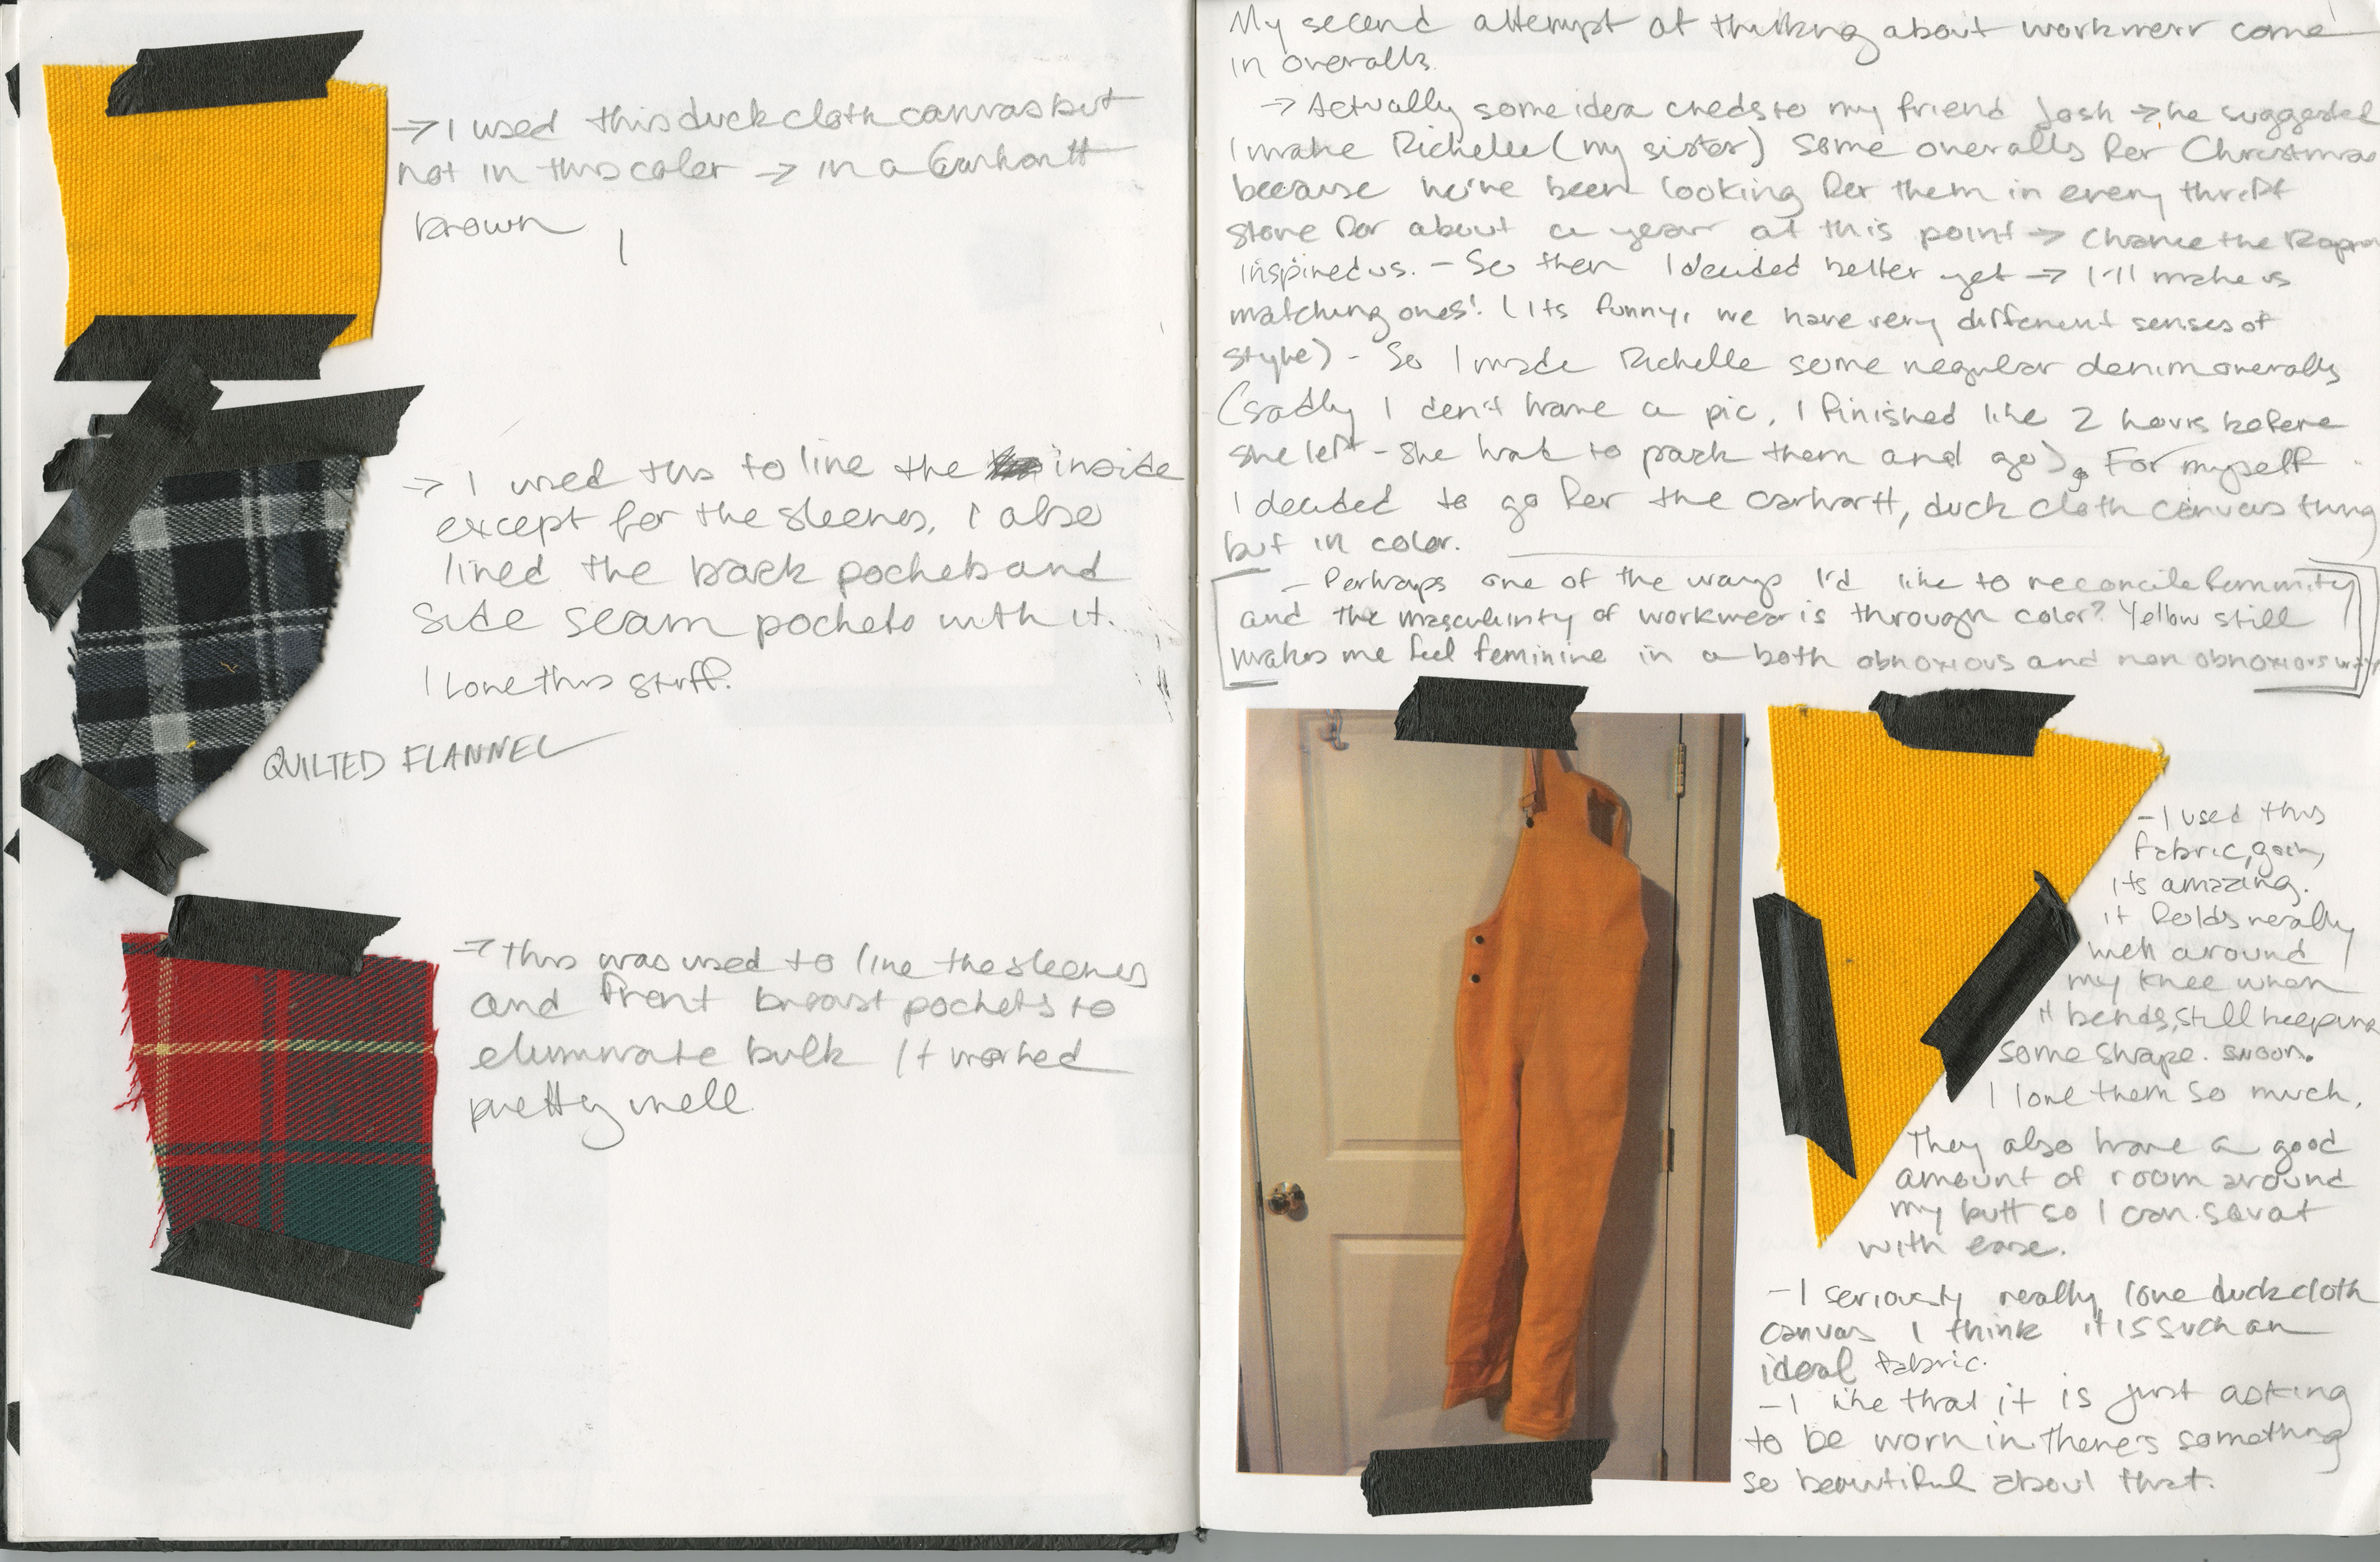 → I used this duck cloth canvas but
not in this color → in a Carhartt
brown
→ I used this to line the inside
except for the sleeves. I also
lined the back pockets and
side seam pockets with it.
I love this stuff.
QUILTED FLANNEL
→ This was used to line the sleeves
and front breast pockets to
eliminate bulk It worked
pretty well.
My second attempt at thinking about workwear came
in overalls.
→ Actually some idea creds to my friend Josh → he suggested
I make Richelle (my sister) some overalls for Christmas
because we've been looking for them in every thrift
store for about a year at this point → Chance the Rapper
inspired us. - So then I decided better yet → I'll make us
matching ones! (its funny, we have very different senses of
style) - So I made Richelle some regular denim overalls
(sadly I don't have a pic, I finished like 2 hours before
she left - she had to pack them and go). For myself
I decided to go for the carhartt, duck cloth canvas thing
but in color.
- Perhaps one of the ways I'd like to reconcile femininity
and the masculinity of workwear is through color? Yellow still
makes me feel feminine in a both obnoxious and non obnoxious way
- I used this
fabric,
its amazing.
it folds really
well around
my knee when
it bends, still keeping
some shape. swoon.
I love them so much.
They also have a good
amount of room around
my butt so I can squat
with ease.
- I seriously really love duck cloth
canvas I think it is such an
ideal fabric.
- I like that it is just asking
to be worn in. There's something
so beautiful about that.